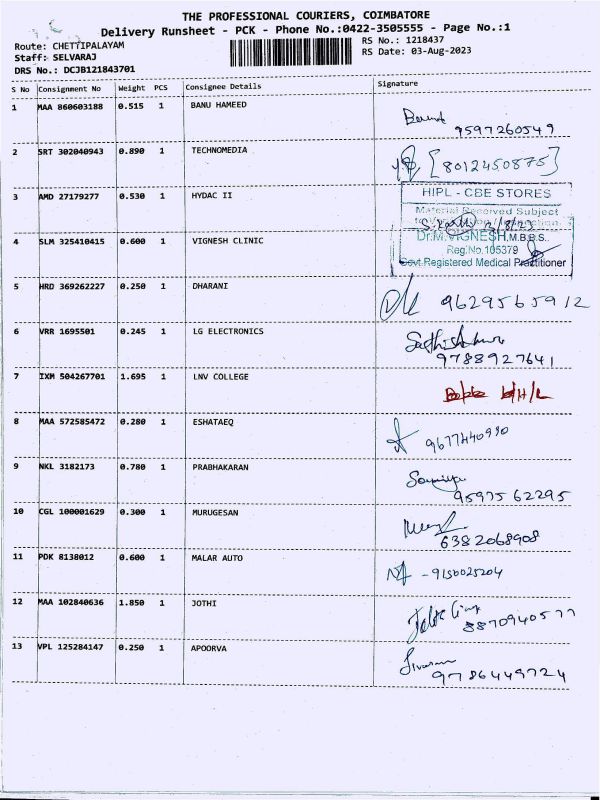 THE PROFESSIONAL COURIERS, COIMBATORE
Delivery Runsheet - PCK - Phone No.:0422-3505555 - Page No.:1
Route: CHETTIPALAYAM
RS No.: 1218437
Staff: SELVARAJ
RS Date: 03-Aug-2023
DRS No.: DCJB121843701
S No Consignment No Weight PCS Consignee Details Signature
1 MAA 860603188 0.515 1 BANU HAMEED
9597260549
2 SRT 302040943 0.890 1 TECHNOMEDIA
[8012450875]
3 AMD 27179277 0.530 1 HYDAC II
HIPL - CBE STORES
Material Received Subject
4 SLM 325410415 0.600 1 VIGNESH CLINIC
Dr.M.VIGNESH,M.B.B.S.,
Reg.No.105379
Govt.Registered Medical Practitioner
5 HRD 369262227 0.250 1 DHARANI
9629565912
6 VRR 1695501 0.245 1 LG ELECTRONICS
9788927641
7 IXM 504267701 1.695 1 LNV COLLEGE
8 MAA 572585472 0.280 1 ESHATAEQ
9677440990
9 NKL 3182173 0.780 1 PRABHAKARAN
9597562295
10 CGL 100001629 0.300 1 MURUGESAN
6382068908
11 PDK 8138012 0.600 1 MALAR AUTO
- 9150025204
12 MAA 102840636 1.850 1 JOTHI
8870940577
13 VPL 125284147 0.250 1 APOORVA
9786449724